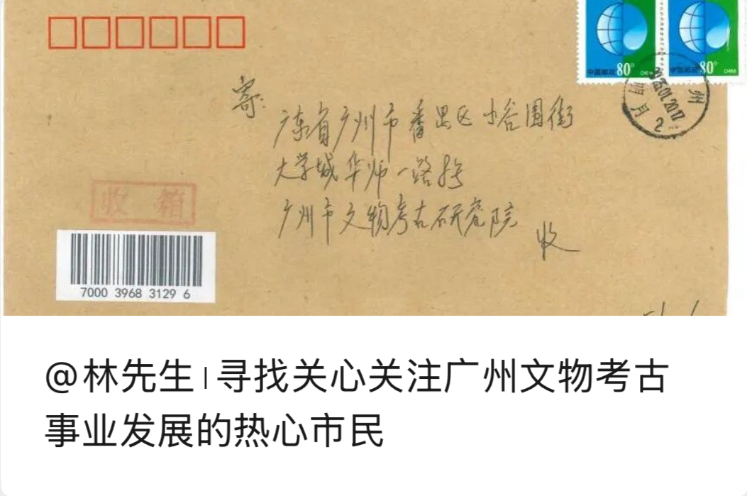 中国邮政 80分 CHINA
中国邮政 80分 CHINA
州
寄：
广东省广州市番禺区小谷围街
大学城华师一路号
广州市文物考古研究院
收
收箱
7000 3968 3129 6
@林先生|寻找关心关注广州文物考古
事业发展的热心市民